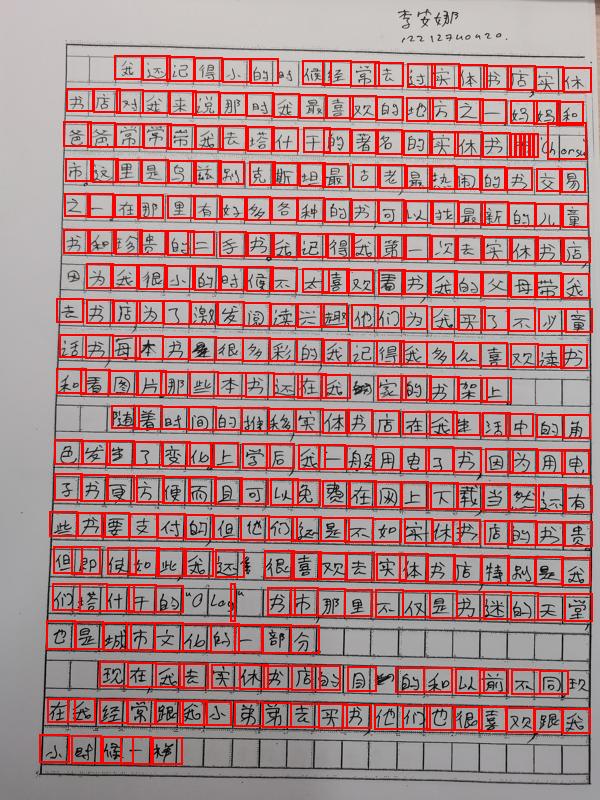 李安娜
12212740420.
我还记得小的时候经常去过实体书店,实休
书店对我来说那时我最喜欢的地方之一,妈妈和
爸爸常常带我去塔什干的著名的实休书 "Chorsu
市,这里是乌兹别克斯坦最古老,最热闹的书交易
之一.在那里有好多各种的书,可以找最新的儿童
书和珍贵的二手书。我记得我第一次去实休书店,
因为我很小的时候不太喜欢看书,我的父母带我
去书店,为了激发阅读兴趣他们为我买了不少童
话书,每本书是很多彩的,我记得我多么喜欢读书
和看图片.那些本书还在我的家的书架上.
随着时间的推移,实体书店在我生活中的角
色发生了变化.上学后,我一般用电子书,因为用电
子书更方便而且可以免费在网上下载,当然还有
些书要支付的,但他们还是不如实休书店的书贵.
但即使如此,我还是很喜欢去实体书店,特别是我
们塔什干的"O'log'" 书市,那里不仅是书迷的天堂,
也是城市文化的一部分
现在,我去实休书店的目的和以前不同,现
在我经常跟我小弟弟去买书,他们也很喜欢,跟我
小时候一样